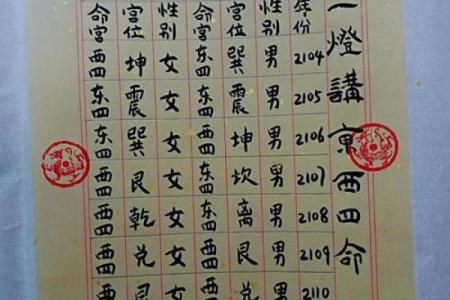 一燈講東西四命
年份 2104 2105 2106 2107 2108 2109 2110
性别 男 男 男 男 男 男 男
宫位 巽 震 坤 坎 离 艮 兑
命宫 东四 东四 西四 东四 东四 西四 西四
性别 女 女 女 女 女 女 女
宫位 坤 震 巽 艮 乾 兑 艮
命宫 西四 东四 东四 西四 西四 西四 西四